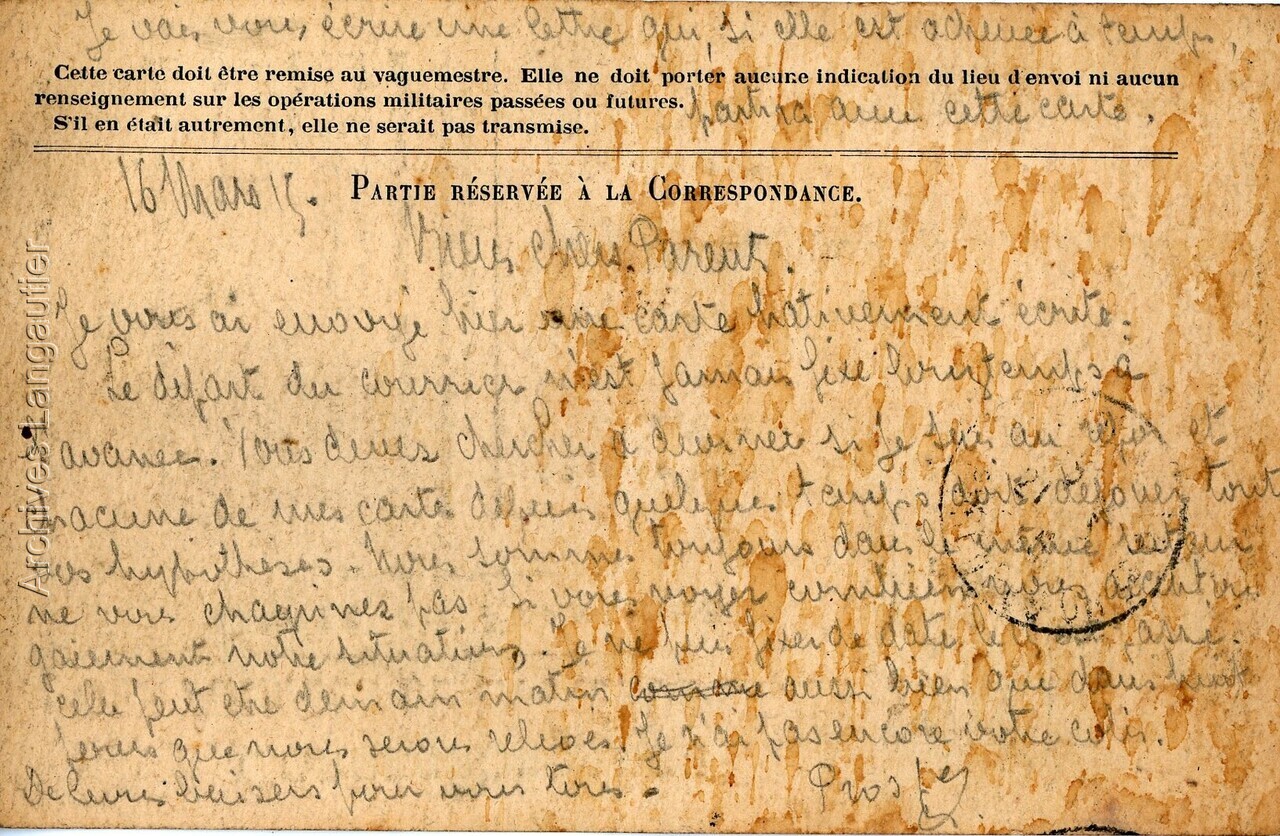 Je vais vous écrire une lettre qui, si elle est achevée à temps,
Cette carte doit être remise au vaguemestre. Elle ne doit porter aucune indication du lieu d'envoi ni aucun
renseignement sur les opérations militaires passées ou futures.
partira avec cette carte.
S'il en était autrement, elle ne serait pas transmise.
16 Mars 15.
PARTIE RÉSERVÉE À LA CORRESPONDANCE.
chers Parents.
Je vous ai envoyé hier une carte hativement écrite.
Le départ du courrier n'est jamais fixé longtemps à
l'avance. Vous devez chercher à deviner si je suis au repos et
chacune de mes cartes depuis quelque temps doit déjouer tout
vos hypothèses. Nous sommes toujours dans le même secteur
ne vous chagrinez pas. Si vous voyez combien nous acceptons
gaiement notre situation. Je ne puis fixer de date
cela peut être demain matin comme aussi bien que dans huit
jours que nous serons relevés. Je n'ai pas encore votre colis.
baisers pour vous tous.
Prosper
Archives Langautier